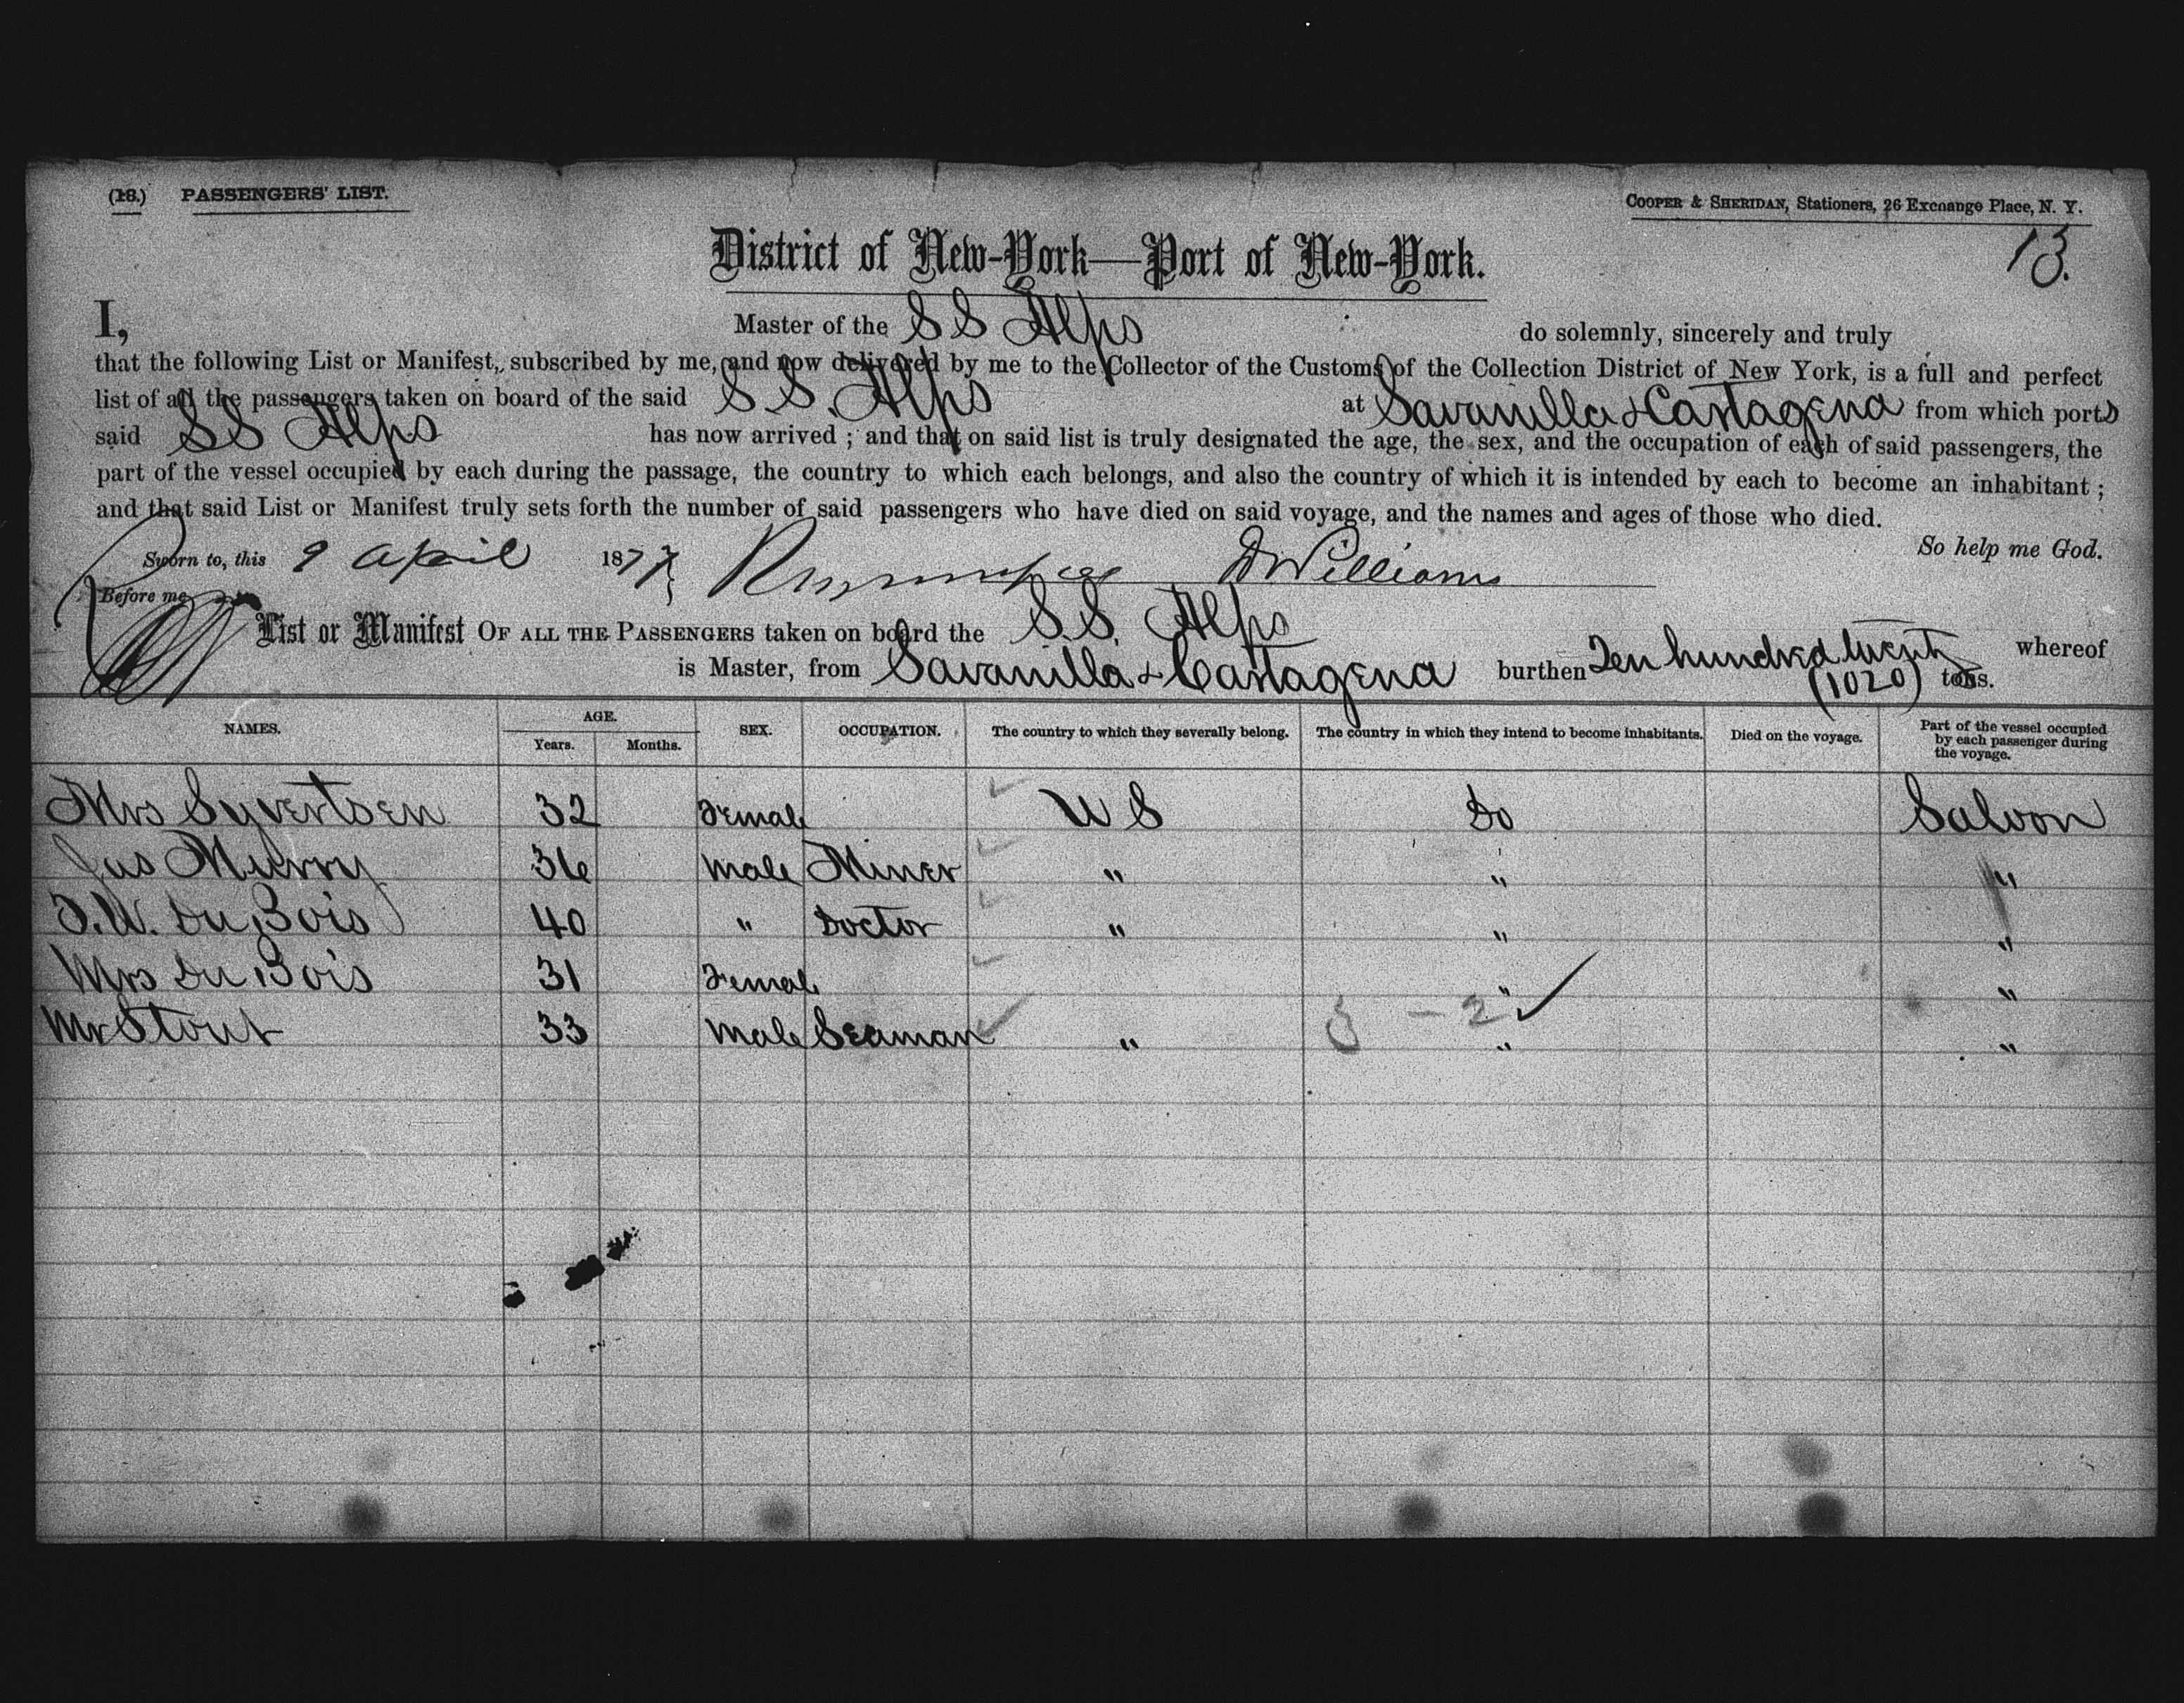 (18.) PASSENGERS' LIST.
COOPER & SHERIDAN, Stationers, 26 Exchange Place, N. Y.
13.
District of New-York—Port of New-York.
I, Master of the S S Alps do solemnly, sincerely and truly
that the following List or Manifest, subscribed by me, and now delivered by me to the Collector of the Customs of the Collection District of New York, is a full and perfect
list of all the passengers taken on board of the said S.S. Alps at Savanilla & Castagena from which ports
said SS Alps has now arrived ; and that on said list is truly designated the age, the sex, and the occupation of each of said passengers, the
part of the vessel occupied by each during the passage, the country to which each belongs, and also the country of which it is intended by each to become an inhabitant ;
and that said List or Manifest truly sets forth the number of said passengers who have died on said voyage, and the names and ages of those who died.
So help me God.
Sworn to, this 9 April 1877 D Williams
Before me
List or Manifest OF ALL THE PASSENGERS taken on board the S.S. Alps whereof
is Master, from Savanilla & Castagena burthen Ten hundred twenty (1020) tons.
NAMES. AGE. Years. Months. SEX. OCCUPATION. The country to which they severally belong. The country in which they intend to become inhabitants. Died on the voyage. Part of the vessel occupied by each passenger during the voyage.
Mrs Syvertsen 32 Female U S Do Saloon
Jas Murry 36 Male Miner " " "
F.W. Du Bois 40 " Doctor " " "
Mrs Du Bois 31 Female " "
Mr Stout 33 Male Seaman " " "
3 - 2